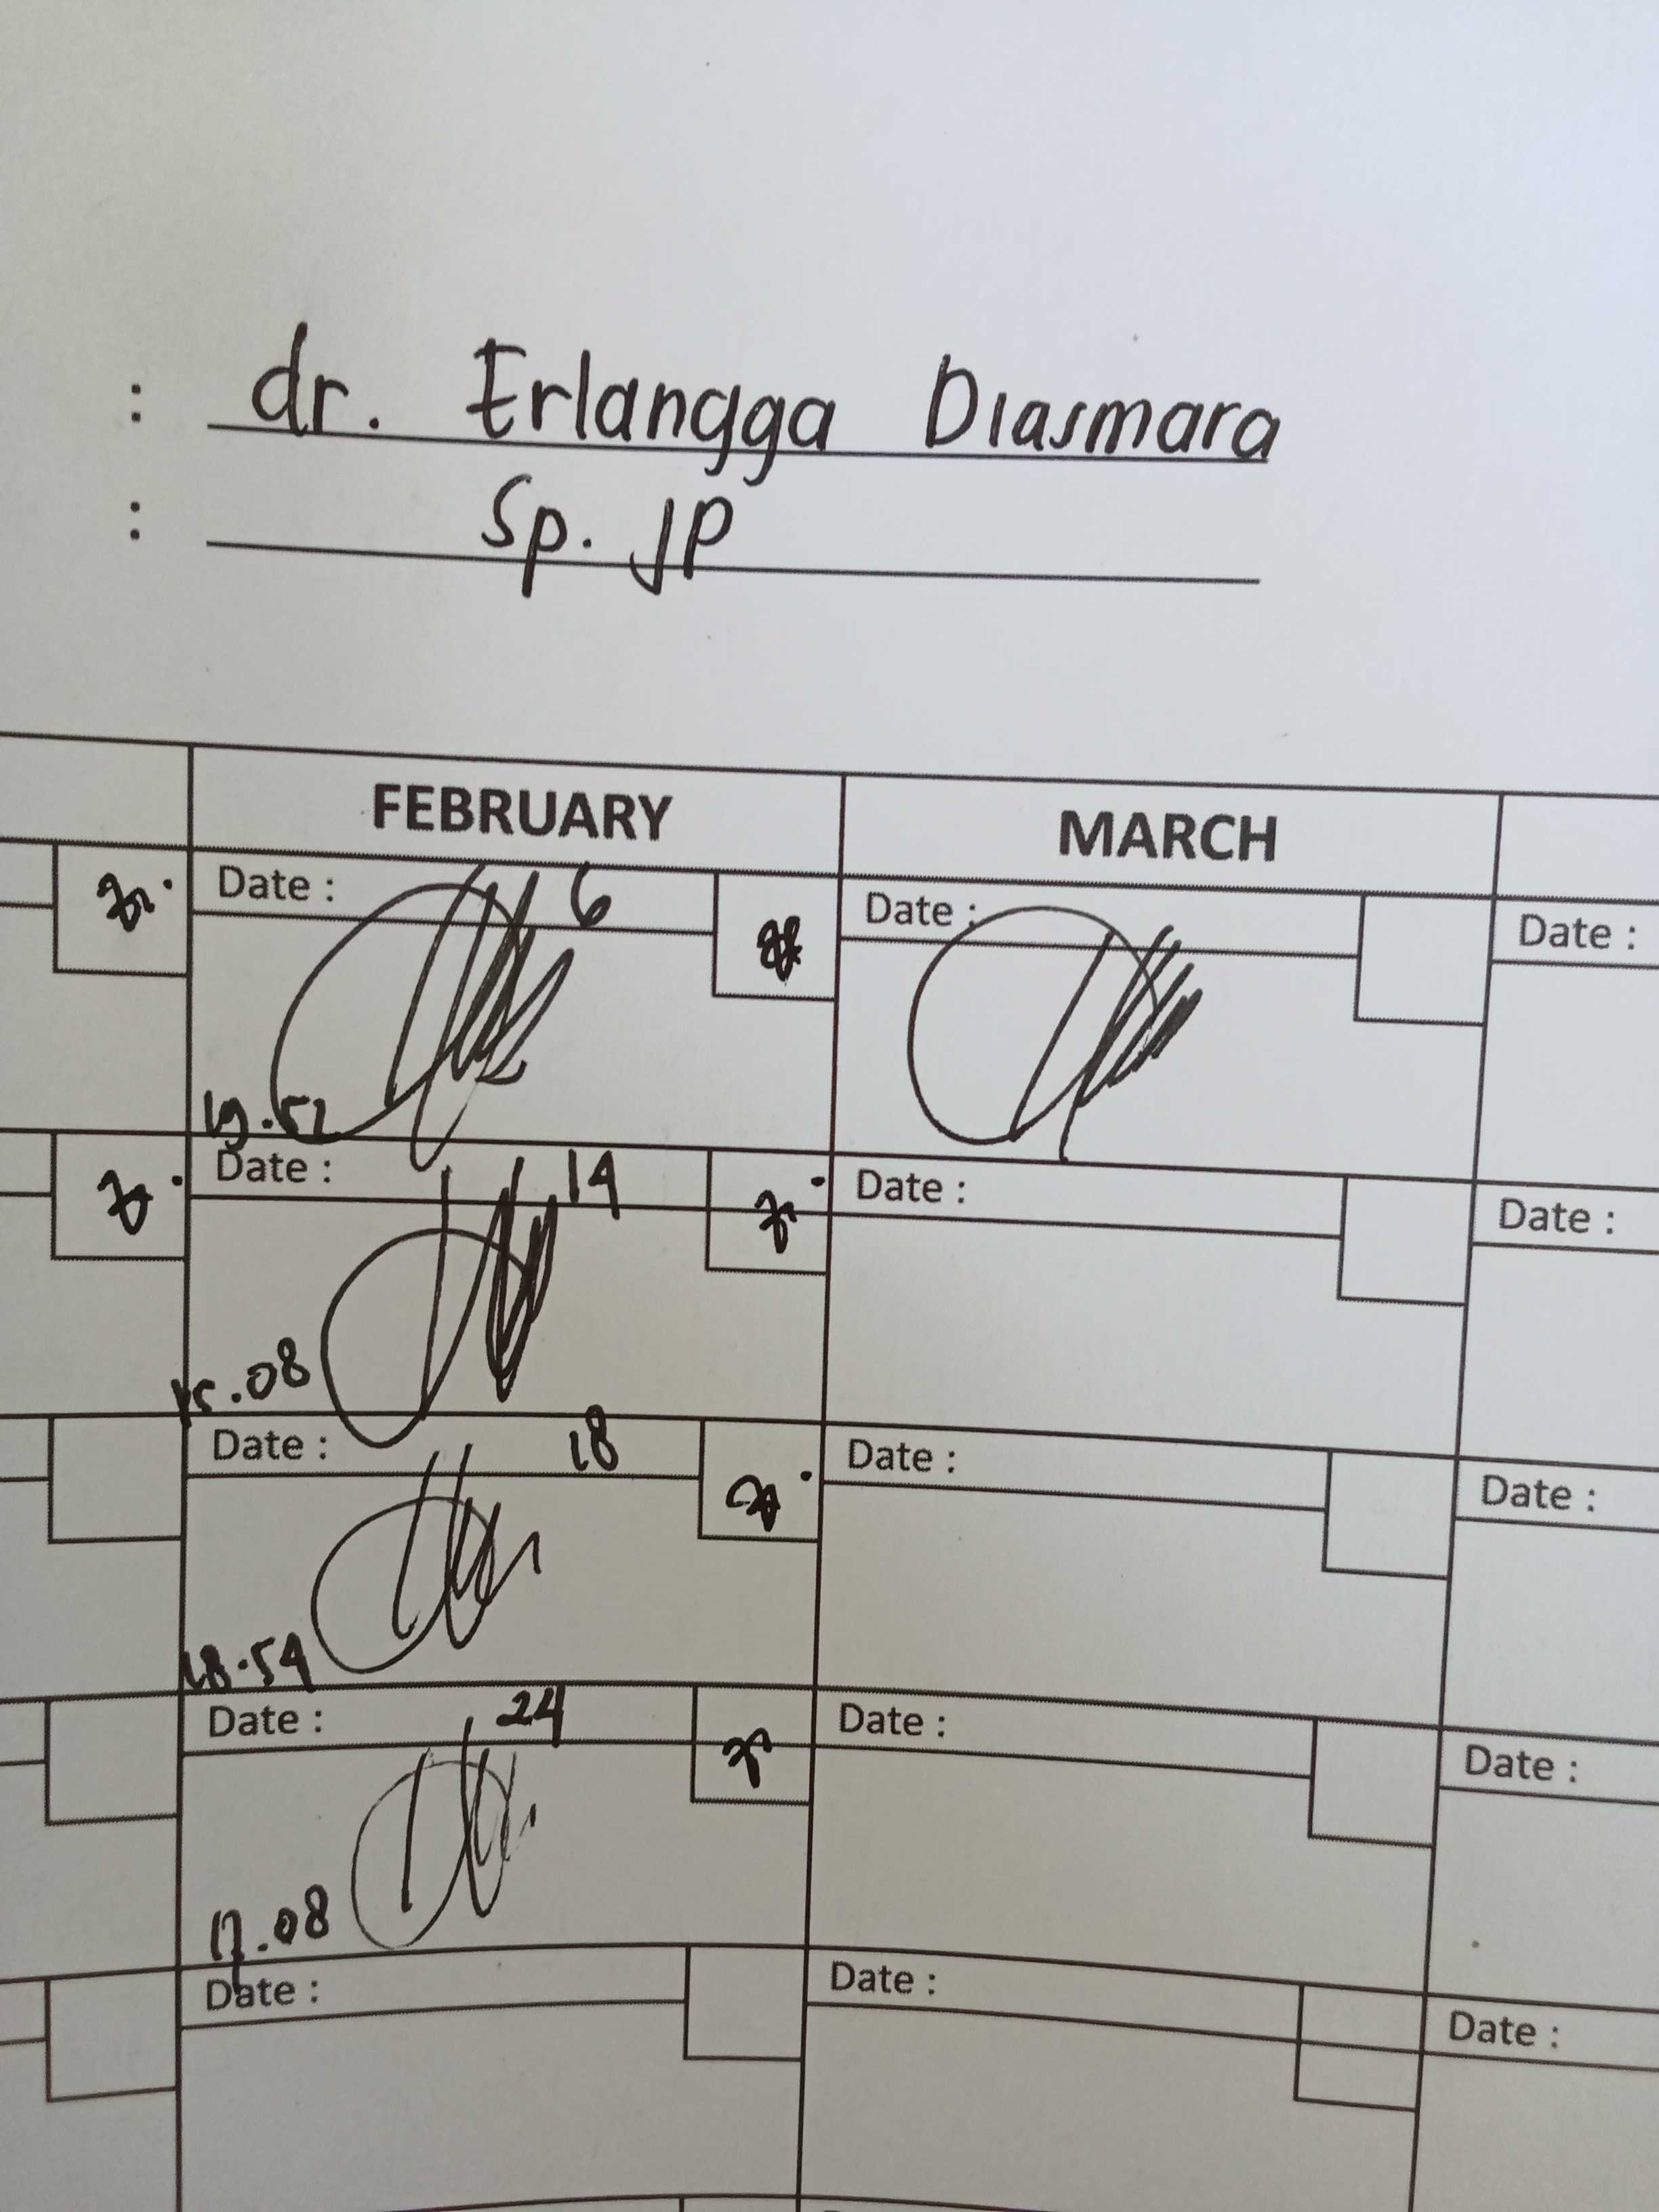 : dr. Erlangga Diasmara
: Sp. JP
FEBRUARY MARCH
Date : 6 Date : Date :
19.52
Date : 14 Date : Date :
15.08
Date : 18 Date : Date :
18.54
Date : 24 Date : Date :
17.08
Date : Date : Date :